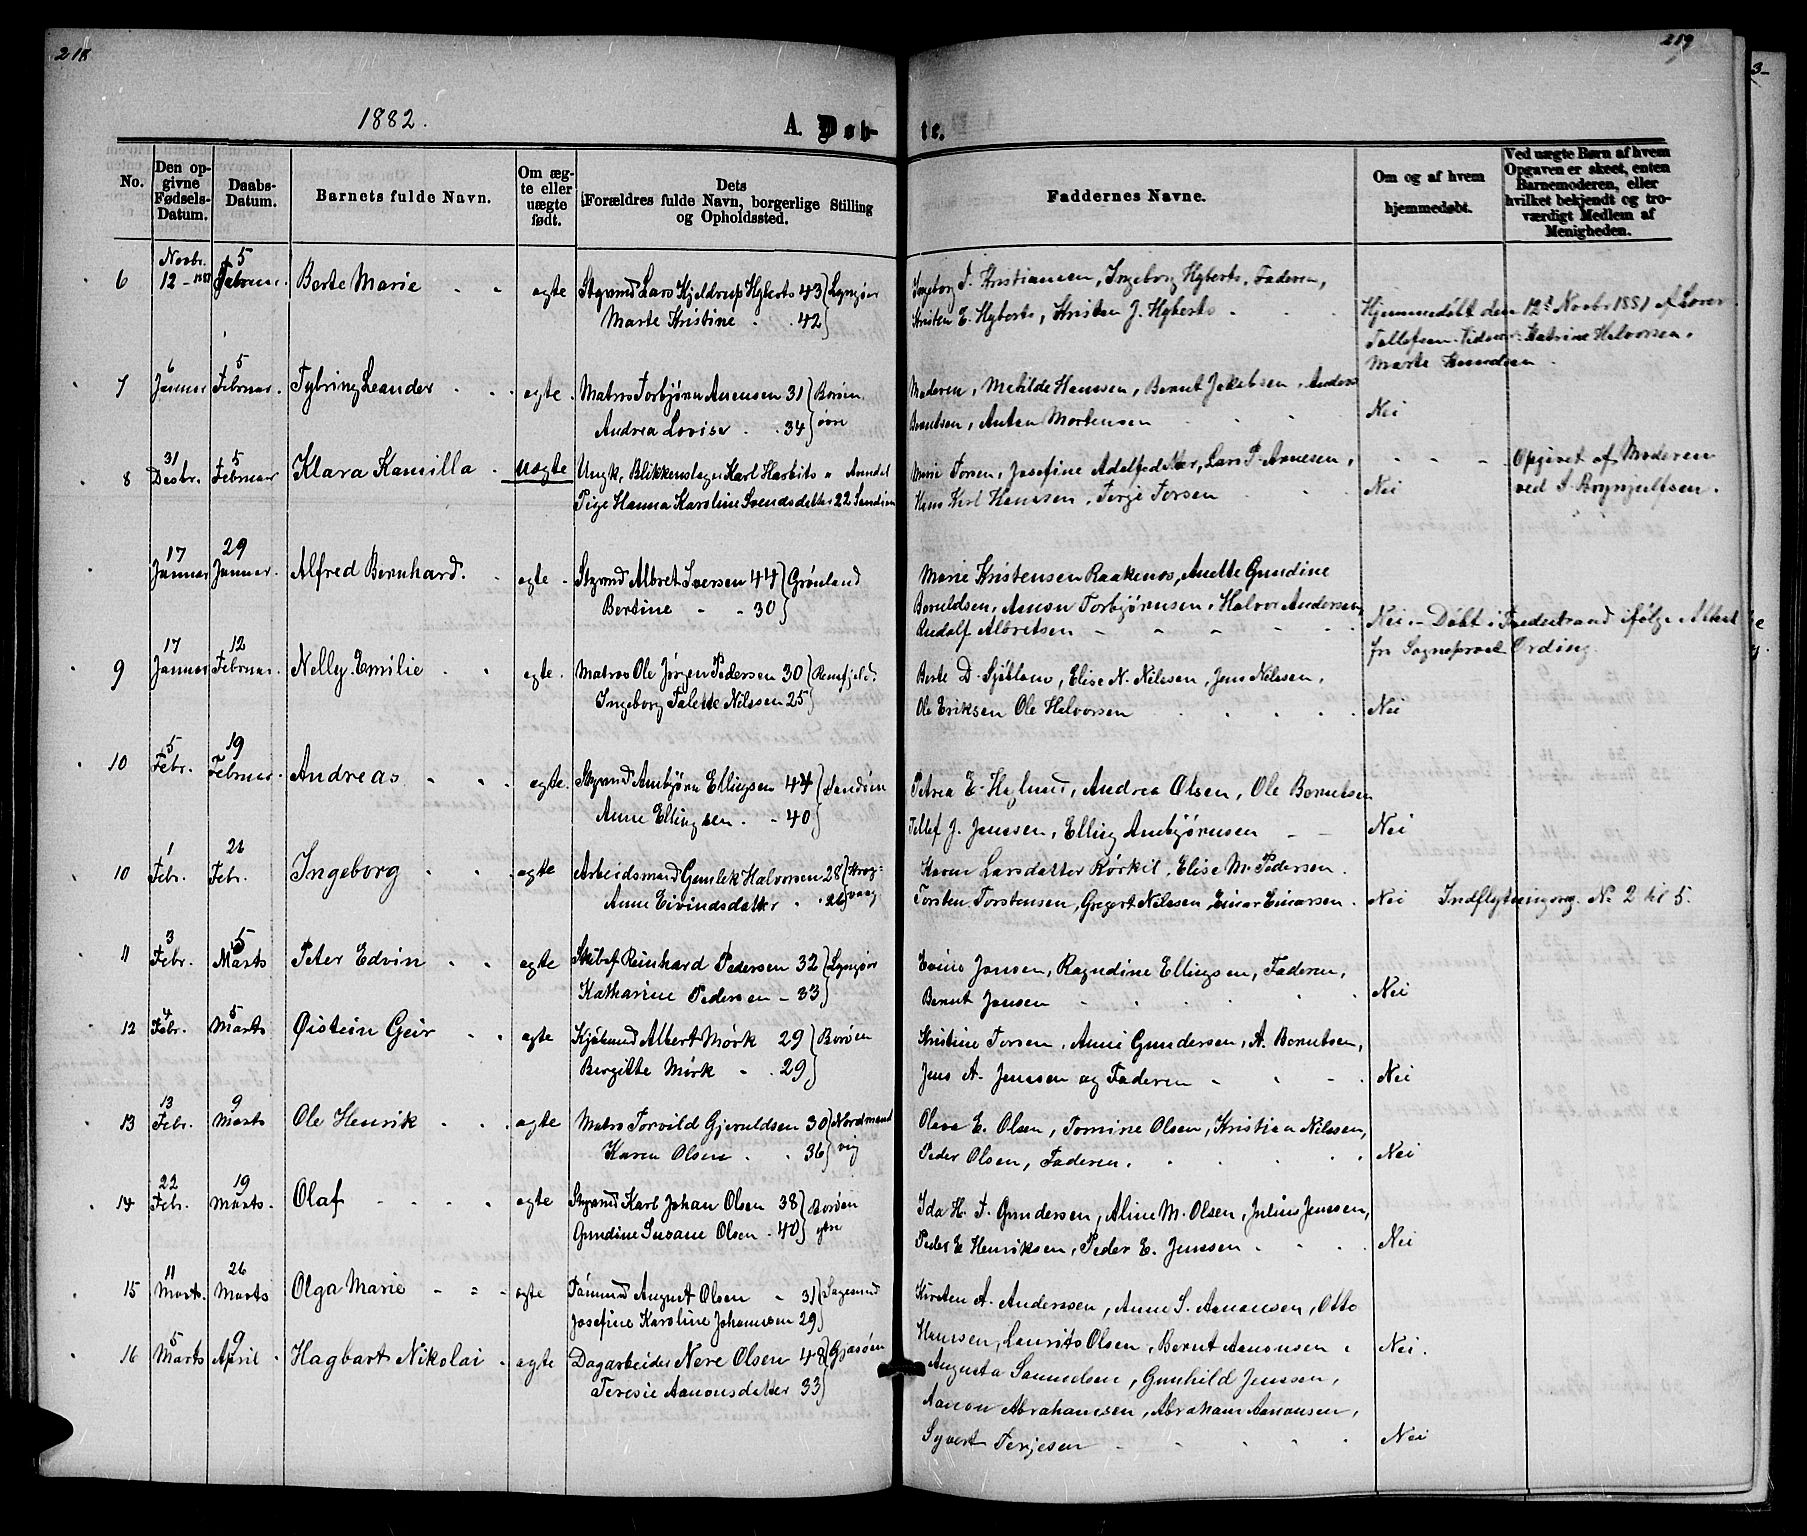 218
219
3-
1882.
A. Døb-
te.
No.
Den op-
givne
Fødsels-
Datum.
Daabs-
Datum.
Barnets fulde Navn.
Om æg-
te eller
uægte
født.
Dets
Forældres fulde Navn, borgerlige Stilling
og Opholdssted.
Faddernes Navne.
Om og af hvem
hjemmedøbt.
Ved uægte Børn af hvem
Opgaven er skeet, enten
Barnemoderen, eller
hvilket bekjendt og tro-
værdigt Medlem af
Menigheden.
Novbr. 5
6 12 - Februar. Berte Marie " " ægte Lars Kjeldrup Hgberts 43 Lyngør Ingeborg T. Kristiansen, Ingeborg Hgberts, Faderen,
Marte Kristine " . 42 Kristen E. Hgberts, Kristen J. Hgberts " Hjemmedøbt den 12t Novbr 1881 af
Tallefsen. Katrine Halvorsen.
Marte Knudsen
6 5
7 Januar Februar. Tybring Leander " " ægte. Matros Torbjørn Anensen 31 Borøen Moderen, Metilde Hanssen, Bernt Jakobsen, Anders
Andrea Lovise . . 34 øvre Berntsen, Anton Mortensen " " Nei
31 5
8 Desbr. Februar Klara Kamilla . uægte Ungk. Blikkenslager Karl Harbits " Arendal Marie Torsen, Josefine Lars P. Arnesen, " " " Opgivet af Moderen
Pige Hanna Karoline Svendsdatter 22 Hans Karl Hanssen, Terje Torsen " Nei ved S. Brynjulfsen.
17 29
Januar Januar. Alfred Bernhard. . ægte . Albret Iversen 44 Grønland Marie Kristensen Raakenes, Anette Gundine
Bertine " " 30 Berntsen, Anton Torbjørnsen, Halvor Andersen,
Rudolf Albretsen " " " Nei. - Døbt i ifølge Attest
fra Sogneprest Ording.
17 12
9 Januar Februar. Nelly Emilie . . ægte. Matros Ole Jørgen Pedersen 30 Berte D. Sjøblom, Elise N. Nilssen, Jens Nilssen,
Ingeborg Talette Nilssen 25 Ole Eriksen Ole Halvorsen . . . Nei
5 19
10 Febr. Februar. Andreas " " . ægte. Anbjørn Ellingsen 44 Sandøen Petrea E. Haglund, Andrea Olsen, Ole Berntsen
Anne Ellingsen. . 40 Tellef J. Jenssen, Elling Anbjørnsen - - Nei
1 26
10 Febr. Febr. Ingeborg . . . ægte Arbeidsmand Gunlek Halvorsen 28 Krog- Karen Larsdatter Rørkil, Elise M. Pedersen.
Anne Eivindsdatter . . 26 vaag Torsten Torstensen, Gregert Nilssen, Einar Einarsen . Nei Indflytningsreg. No 2 til 5.
3 5
11 Febr. Marts Peter Edvin . . ægte Reinhard Pedersen 32 Lyngør Jensen, Ragndine Ellingsen, Faderen,
Katharine Pedersen - 33 Bernt Jensen " . . . Nei
4 5
12 Febr. Marts Øistein Geir . . ægte Kjøbmand Albert Mørk 29 Borøen Kristine Torsen, Anne Gundersen, A. Berntsen,
Birgitte Mørk " . 29 Jens A. Jenssen og Faderen " . Nei
13 9
13 Febr. Marts Ole Henrik . . . ægte Matros Torvild Gjeruldsen 30 Nordmand Olava E. Olsen, Tomine Olsen, Kristian Nilssen,
Karen Olsen . . 36 vig Peder Olsen, Faderen. . . . Nei
22 19
14 Febr. Marts. Olaf . . . ægte Karl Johan Olsen 38 Borøen Ida H. T. Gundersen, Aline M. Olsen, Julius Jenssen,
Gundine Susane Olsen . 40 Peder E Henriksen, Peder E. Jenssen . . . Nei
11 26
15 Marts. Marts Olga Marie - " - ægte August Olsen " 31 Sagesund Kirsten A. Anderssen, Anne S. Aanonsen, Otto
Josefine Karoline Johannesen 29 Hanssen, Laurits Olsen, Bernt Aanonsen . Nei.
5 9
16 Marts April . Hagbart Nikolai . ægte Dagarbeider Nere Olsen 48 Gjæsøen Augusta Samuelsen, Gunhild Jenssen,
Teresie Aanonsdatter 33 Aanon Abrahamsen, Abraham Aanonsen,
Syvert Terjesen " " " Nei